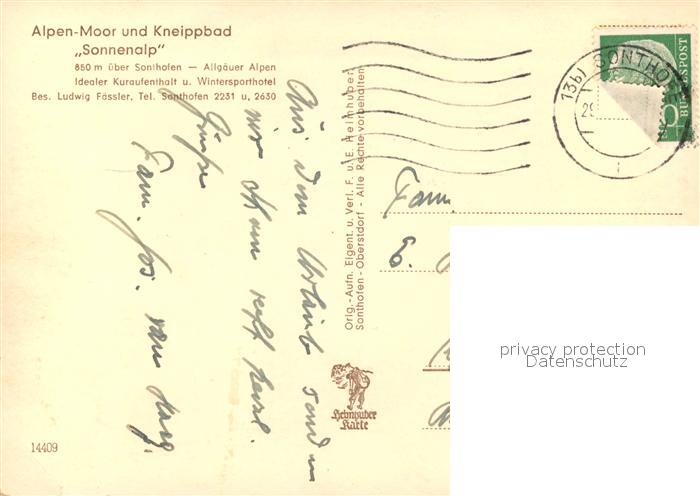 Alpen-Moor und Kneippbad
„Sonnenalp"
850 m über Sonthofen — Allgäuer Alpen
Idealer Kuraufenthalt u. Wintersporthotel
Bes. Ludwig Fässler, Tel. Sonthofen 2231 u, 2630
Aus dem Urlaub
Grüße
Fam. Jos. van
Orig.-Aufn. Eigent. u. Verl. F. u. E. Heimhuber
Sonthofen - Oberstdorf - Alle Rechte vorbehalten
Heimhuber
Karte
(13b) SONTHO
29
BUNDESPOST
5
Fam.
privacy protection
Datenschutz
14409